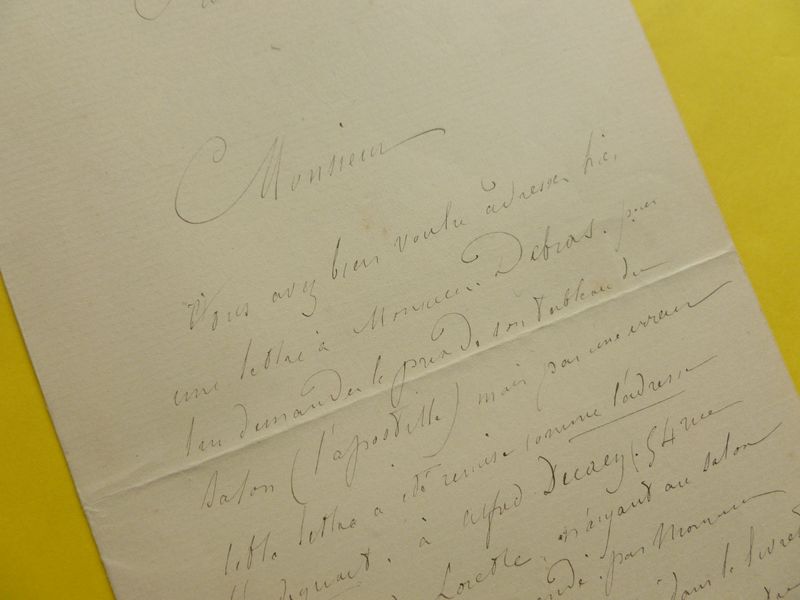 Monsieur
Vous avez bien voulu adresser hier
une lettre à Monsieur Debras. pour
lui demander le prix de son tableau du
Salon (l'apostille) mais par une erreur
cette lettre a été remise comme l'adresse
à Alfred 54 rue
Lorette, n'ayant au salon
par Monsieur
dans le livret